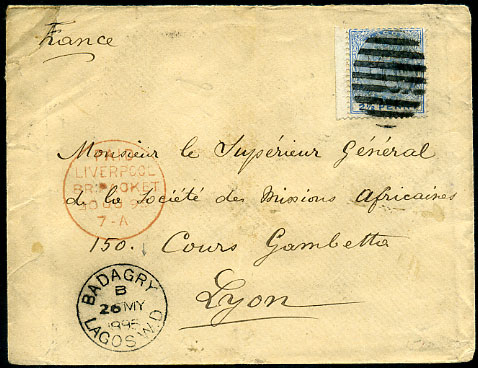 France
2½ PENNY
Monsieur le Supérieur Général
LIVERPOOL
BR PACKET
7-A
de la Société des Missions Africaines
150. Cours Gambetta
Lyon
BADAGRY
B
26 MY
LAGOS W.D